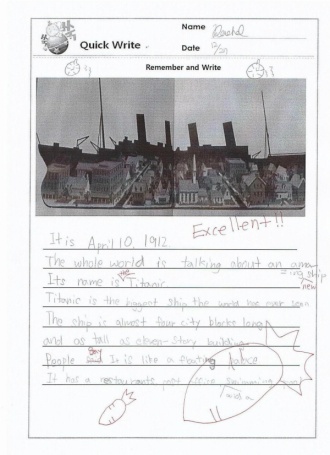 Name Rachel
Quick Write
Date 9/29
Remember and Write
Excellent!!
It is April 10, 1912.
The whole world is talking about an amazing ship
Its name is the Titanic new
Titanic is the biggest ship the world has ever seen
The ship is almost four city blocks long
and as tall as eleven-story building
People say It is like a floating palace
It has a restaurants post office swimming pool